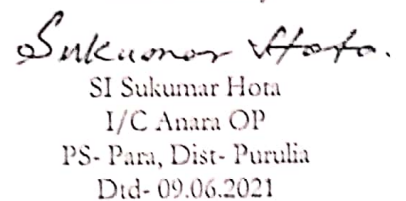 Sukumar Hota.
SI Sukumar Hota
I/C Anara OP
PS- Para, Dist- Purulia
Dtd- 09.06.2021